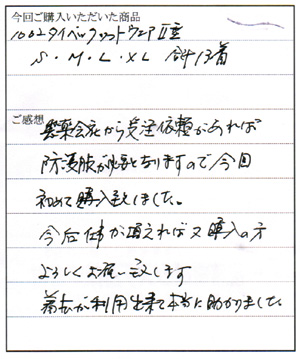 今回ご購入いただいた商品
1002タイベックソフトウェアⅡ型
S・M・L・XL 合計13着
ご感想
会社から受注依頼があれば
防護服が必要となりますので今回
初めて購入致しました。
今后仕事が増えれば又購入の方
よろしくお願い致します
着払が利用出来て本当に助かりました